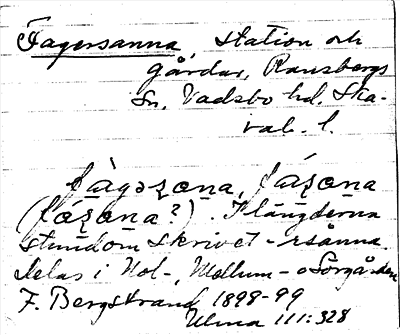 Fagersanna, station och
gårdar, Ransbergs
Sn, Vadsbo hd. Ska-
rab. l.
fàgəʂana, fáʂana
(fóʂana?). I längderna
stundom skrivet -rsånna.
Delas i Nol-, Mellum- o Sörgården
F. Bergstrand 1898-99
Ulma 111:328